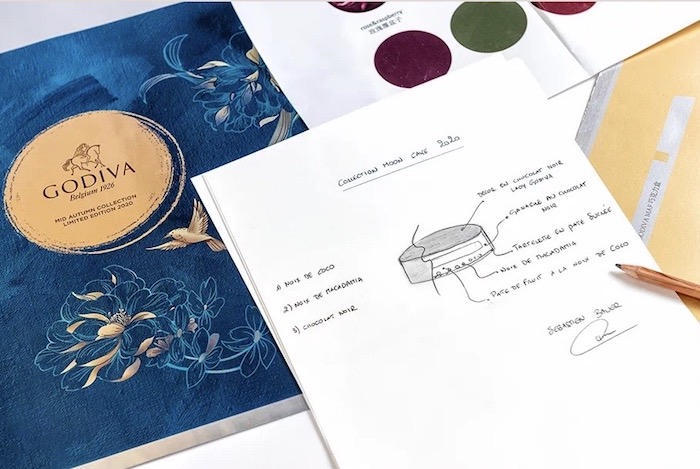 GODIVA
Belgium 1926
MID AUTUMN COLLECTION
LIMITED EDITION 2020
rose&raspberry
玫瑰覆盆子
COLLECTION MOON CAKE 2020
DECOR EN CHOCOLAT NOIR
LADY GODIVA
GANACHE AU CHOCOLAT
NOIR
TARTELETTE EN PATE SUCRÉE
NOIX DE MACADAMIA
PATE DE FRUIT A LA NOIX DE COCO
1) NOIX DE COCO
2) NOIX DE MACADAMIA
3) CHOCOLAT NOIR
SEBASTIEN BAUER
GODIVA MAF 巧克力盒